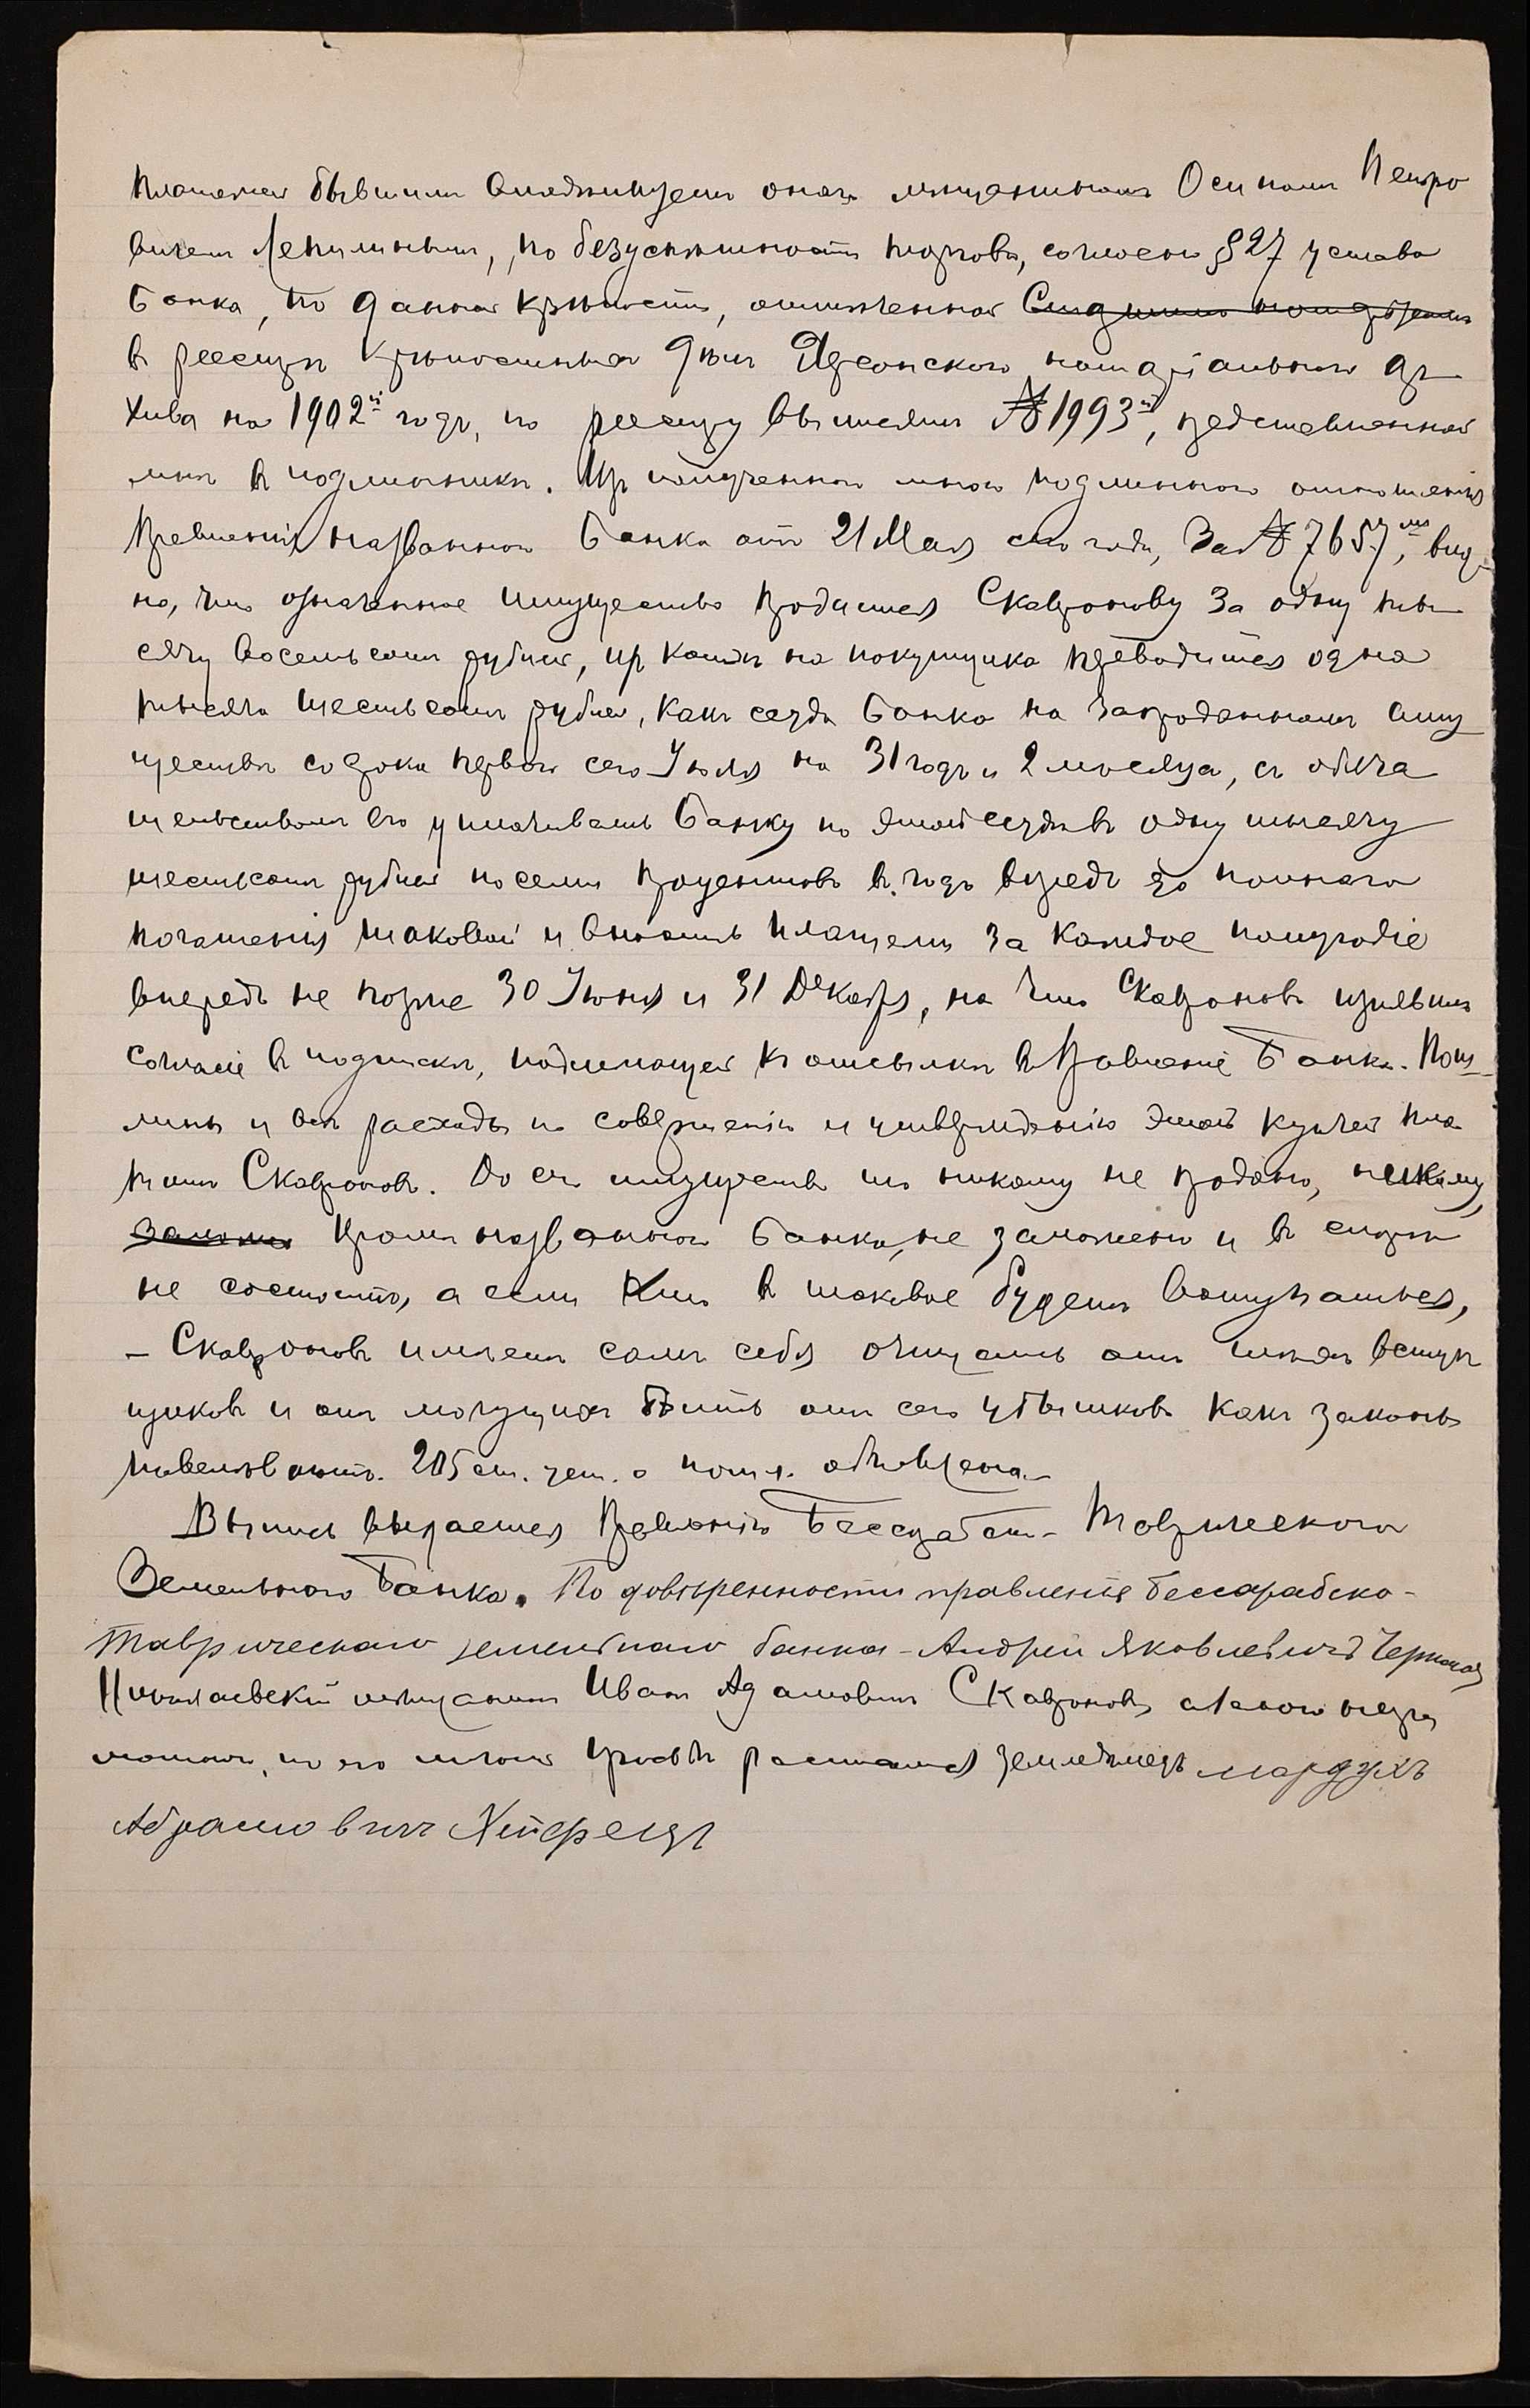 платежей бывшимъ владѣльцемъ онаго мѣщаниномъ Осипомъ Петро
вичемъ Лепилинымъ, по безуспѣшности торговъ, согласно § 27 устава
Банка, по данной крѣпости, отмѣченной
въ реестрѣ крѣпостныхъ дѣлъ Херсонскаго нотаріальнаго ар
хива на 1902й годъ, по реестру выписями № 1993й, представленной
мнѣ въ подлинникѣ. Изъ полученнаго мною подлиннаго отношенія
Правленія названнаго Банка отъ 21 Мая сего года, за № 7657мъ, вид-
но, что означенное имущество продается Скавронову за одну ты
сячу восемьсотъ рублей, изъ коихъ на покупщика переводится одна
тысяча шестьсотъ рублей, какъ ссуда Банка на запроданномъ иму
ществѣ со срока перваго сего Іюля на 31 годъ и 2 мѣсяца, съ обяза
тельствомъ его уплачивать Банку по этой ссудѣ въ одну тысячу
шестьсотъ рублей по семи процентовъ въ годъ впредь до полнаго
погашенія таковой и вносить платежи за каждое полугодіе
впередъ не позже 30 Іюня и 31 Декабря, на что Скавроновъ изъявилъ
согласіе въ подпискѣ, подлежащей къ отсылкѣ въ Правленіе Банка. Пош-
лины и всѣ расходы по совершенію и утвержденію этой купчей пла
титъ Скавроновъ. До сего имущество никому не продано, никому,
кромѣ названнаго Банка, не заложено и въ спорѣ
не состоитъ, а если кто въ таковое будетъ вступаться,
- Скавроновъ имѣетъ самъ себя очищать отъ тѣхъ вступ
щиковъ и отъ могущихъ быть отъ сего убытковъ какъ законы
повелѣваютъ. 205 ст. уст. о пошл. объявлена.
Выпись выдается Правленію Бессарабско-Таврическаго
Земельнаго Банка. По довѣренности правленія бессарабско-
таврическаго земельнаго банка - Андрей Яковлевичъ
Николаевскій мѣщанинъ Иванъ Адамовичъ Скавроновъ, а за него негра
мотнаго, по его личной просьбѣ расписался землемѣръ Мордухъ
Абрамовичъ